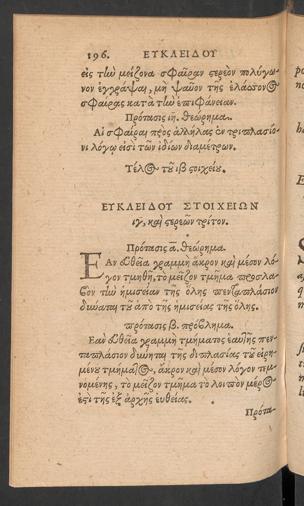 196. ΕΥΚΛΕΙΔΟΥ
εἰς τὴν μείζονα σφαῖραν στερεὸν πολύγω-
νον ἐγγράψαι, μὴ ψαῦον τῆς ἐλάσσονος
σφαίρας κατὰ τὴν ἐπιφάνειαν.
Πρότασις ιη. θεώρημα.
Αἱ σφαῖραι πρὸς ἀλλήλας ἐν τριπλασίο-
νι λόγῳ εἰσὶ τῶν ἰδίων διαμέτρων.
Τέλος τοῦ ιβ στοιχείου.
ΕΥΚΛΕΙΔΟΥ ΣΤΟΙΧΕΙΩΝ
ιγ, καὶ στερεῶν τρίτον.
Πρότασις α. θεώρημα.
Εὰν εὐθεῖα γραμμὴ ἄκρον καὶ μέσον λό-
γον τμηθῇ, τὸ μεῖζον τμῆμα προσλα-
βὸν τὴν ἡμισείαν τῆς ὅλης πενταπλάσιον
δύναται τοῦ ἀπὸ τῆς ἡμισείας τῆς ὅλης.
πρότασις β. πρόβλημα.
Εὰν εὐθεῖα γραμμὴ τμήματος ἑαυτῆς πεν-
ταπλάσιον δύνηται, τῆς διπλασίας τοῦ εἰρη-
μένου τμήματος, ἄκρον καὶ μέσον λόγον τεμ-
νομένης, τὸ μεῖζον τμῆμα τὸ λοιπὸν μέρος
ἐστὶ τῆς ἐξ ἀρχῆς εὐθείας.
Πρότα-